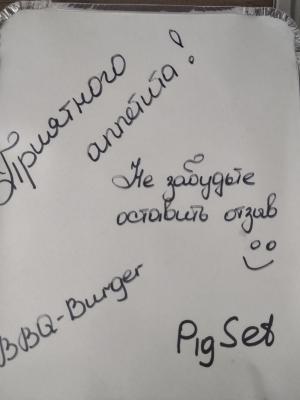 Приятного
аппетита!
Не забудьте
оставить отзыв
BBQ-Burger
PigSet